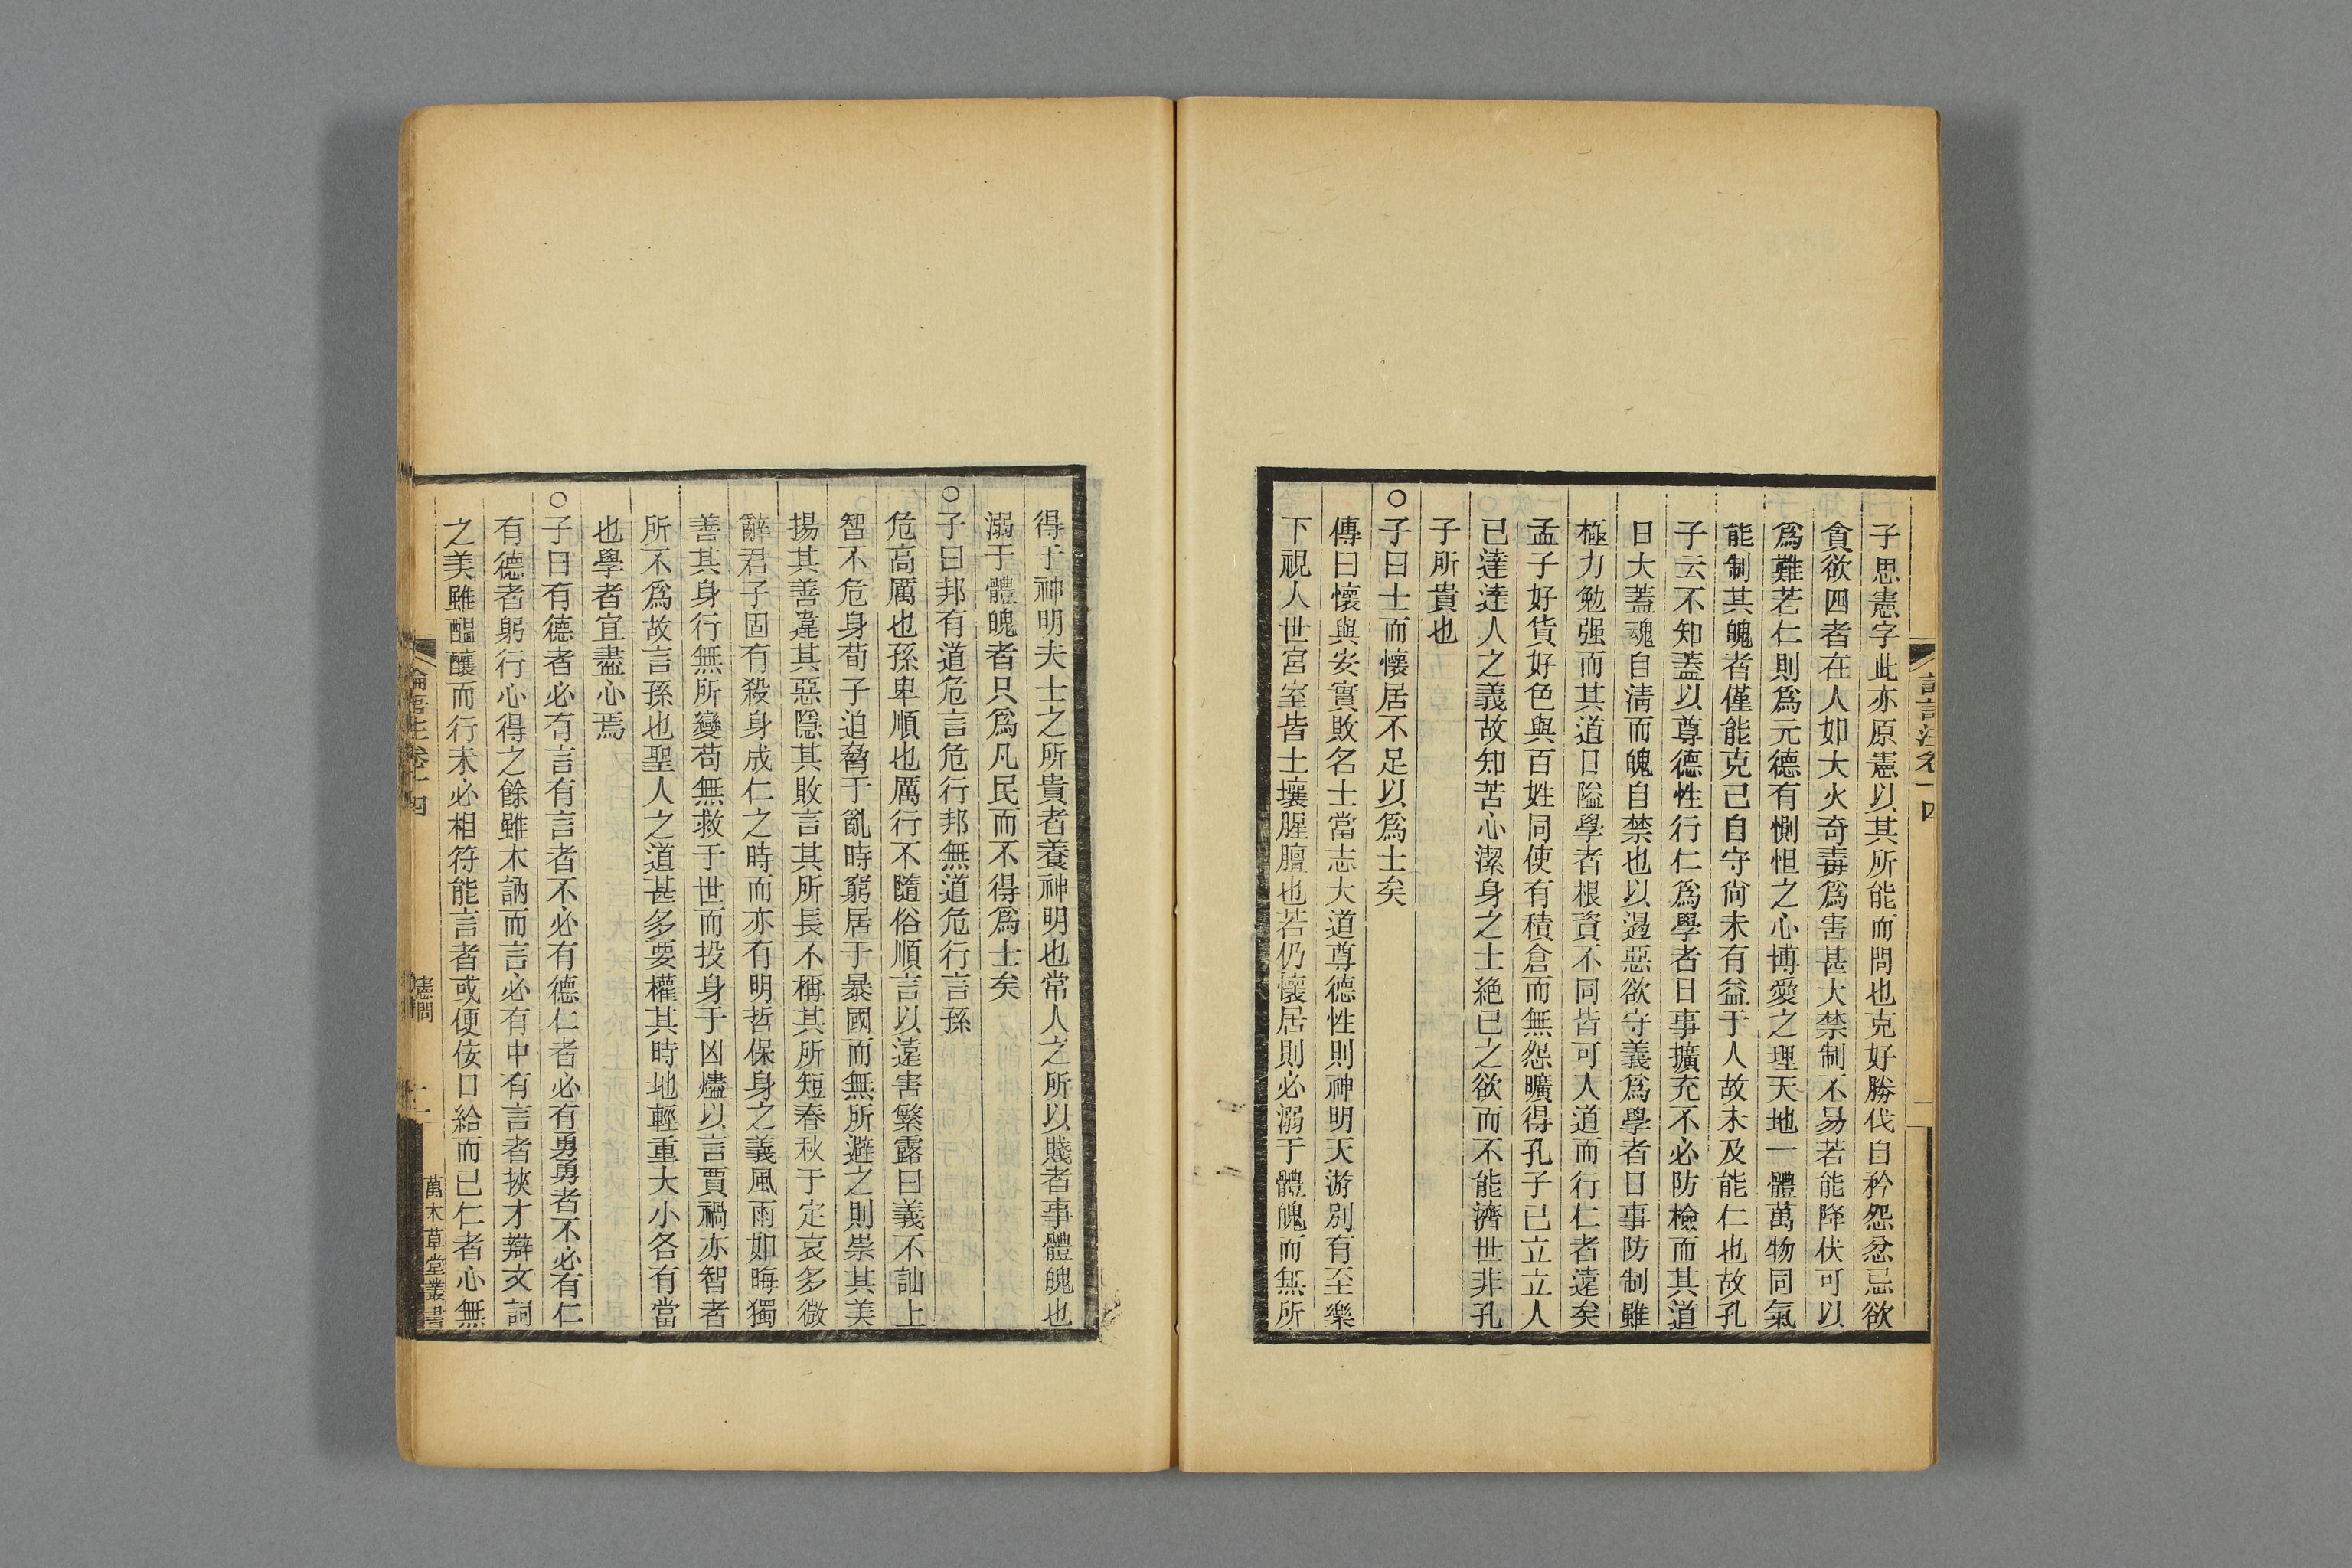 子思憲字此亦原憲以其所能而問也克好勝伐自矜怨忿忌欲
貪欲四者在人如大火奇毒爲害甚大禁制不易若能降伏可以
爲難若仁則爲元德有惻怛之心博愛之理天地一體萬物同氣
能制其魄者僅能克己自守尙未有益于人故未及能仁也故孔
子云不知蓋以尊德性行仁爲學者日事擴充不必防檢而其道
日大蓋魂自淸而魄自禁也以遏惡欲守義爲學者日事防制雖
極力勉强而其道日隘學者根資不同皆可入道而行仁者遠矣
孟子好貨好色與百姓同使有積倉而無怨曠得孔子已立立人
已達達人之義故知苦心潔身之士絶已之欲而不能濟世非孔
子所貴也
○子曰士而懷居不足以爲士矣
傳曰懷與安實敗名士當志大道尊德性則神明天游別有至樂
下視人世宮室皆土壤腥膻也若仍懷居則必溺于體魄而無所
得于神明夫士之所貴者養神明也常人之所以賤者事體魄也
溺于體魄者只爲凡民而不得爲士矣
○子曰邦有道危言危行邦無道危行言孫
危高厲也孫卑順也厲行不隨俗順言以遠害繁露曰義不訕上
智不危身荀子迫脅于亂時窮居于暴國而無所避之則崇其美
揚其善違其惡隱其敗言其所長不稱其所短春秋于定哀多微
辭君子固有殺身成仁之時而亦有明哲保身之義風雨如晦獨
善其身行無所變苟無救于世而投身于凶燼以言賈禍亦智者
所不爲故言孫也聖人之道甚多要權其時地輕重大小各有當
也學者宜盡心焉
○子曰有德者必有言有言者不必有德仁者必有勇勇者不必有仁
有德者躬行心得之餘雖木訥而言必有中有言者挾才辯文詞
之美雖醞釀而行未必相符能言者或便佞口給而已仁者心無
論語注卷十四
憲問
二
萬木草堂叢書